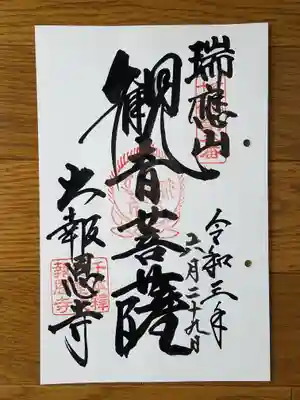 瑞應山
令和三年
月二十九日
観音菩薩
大報恩寺